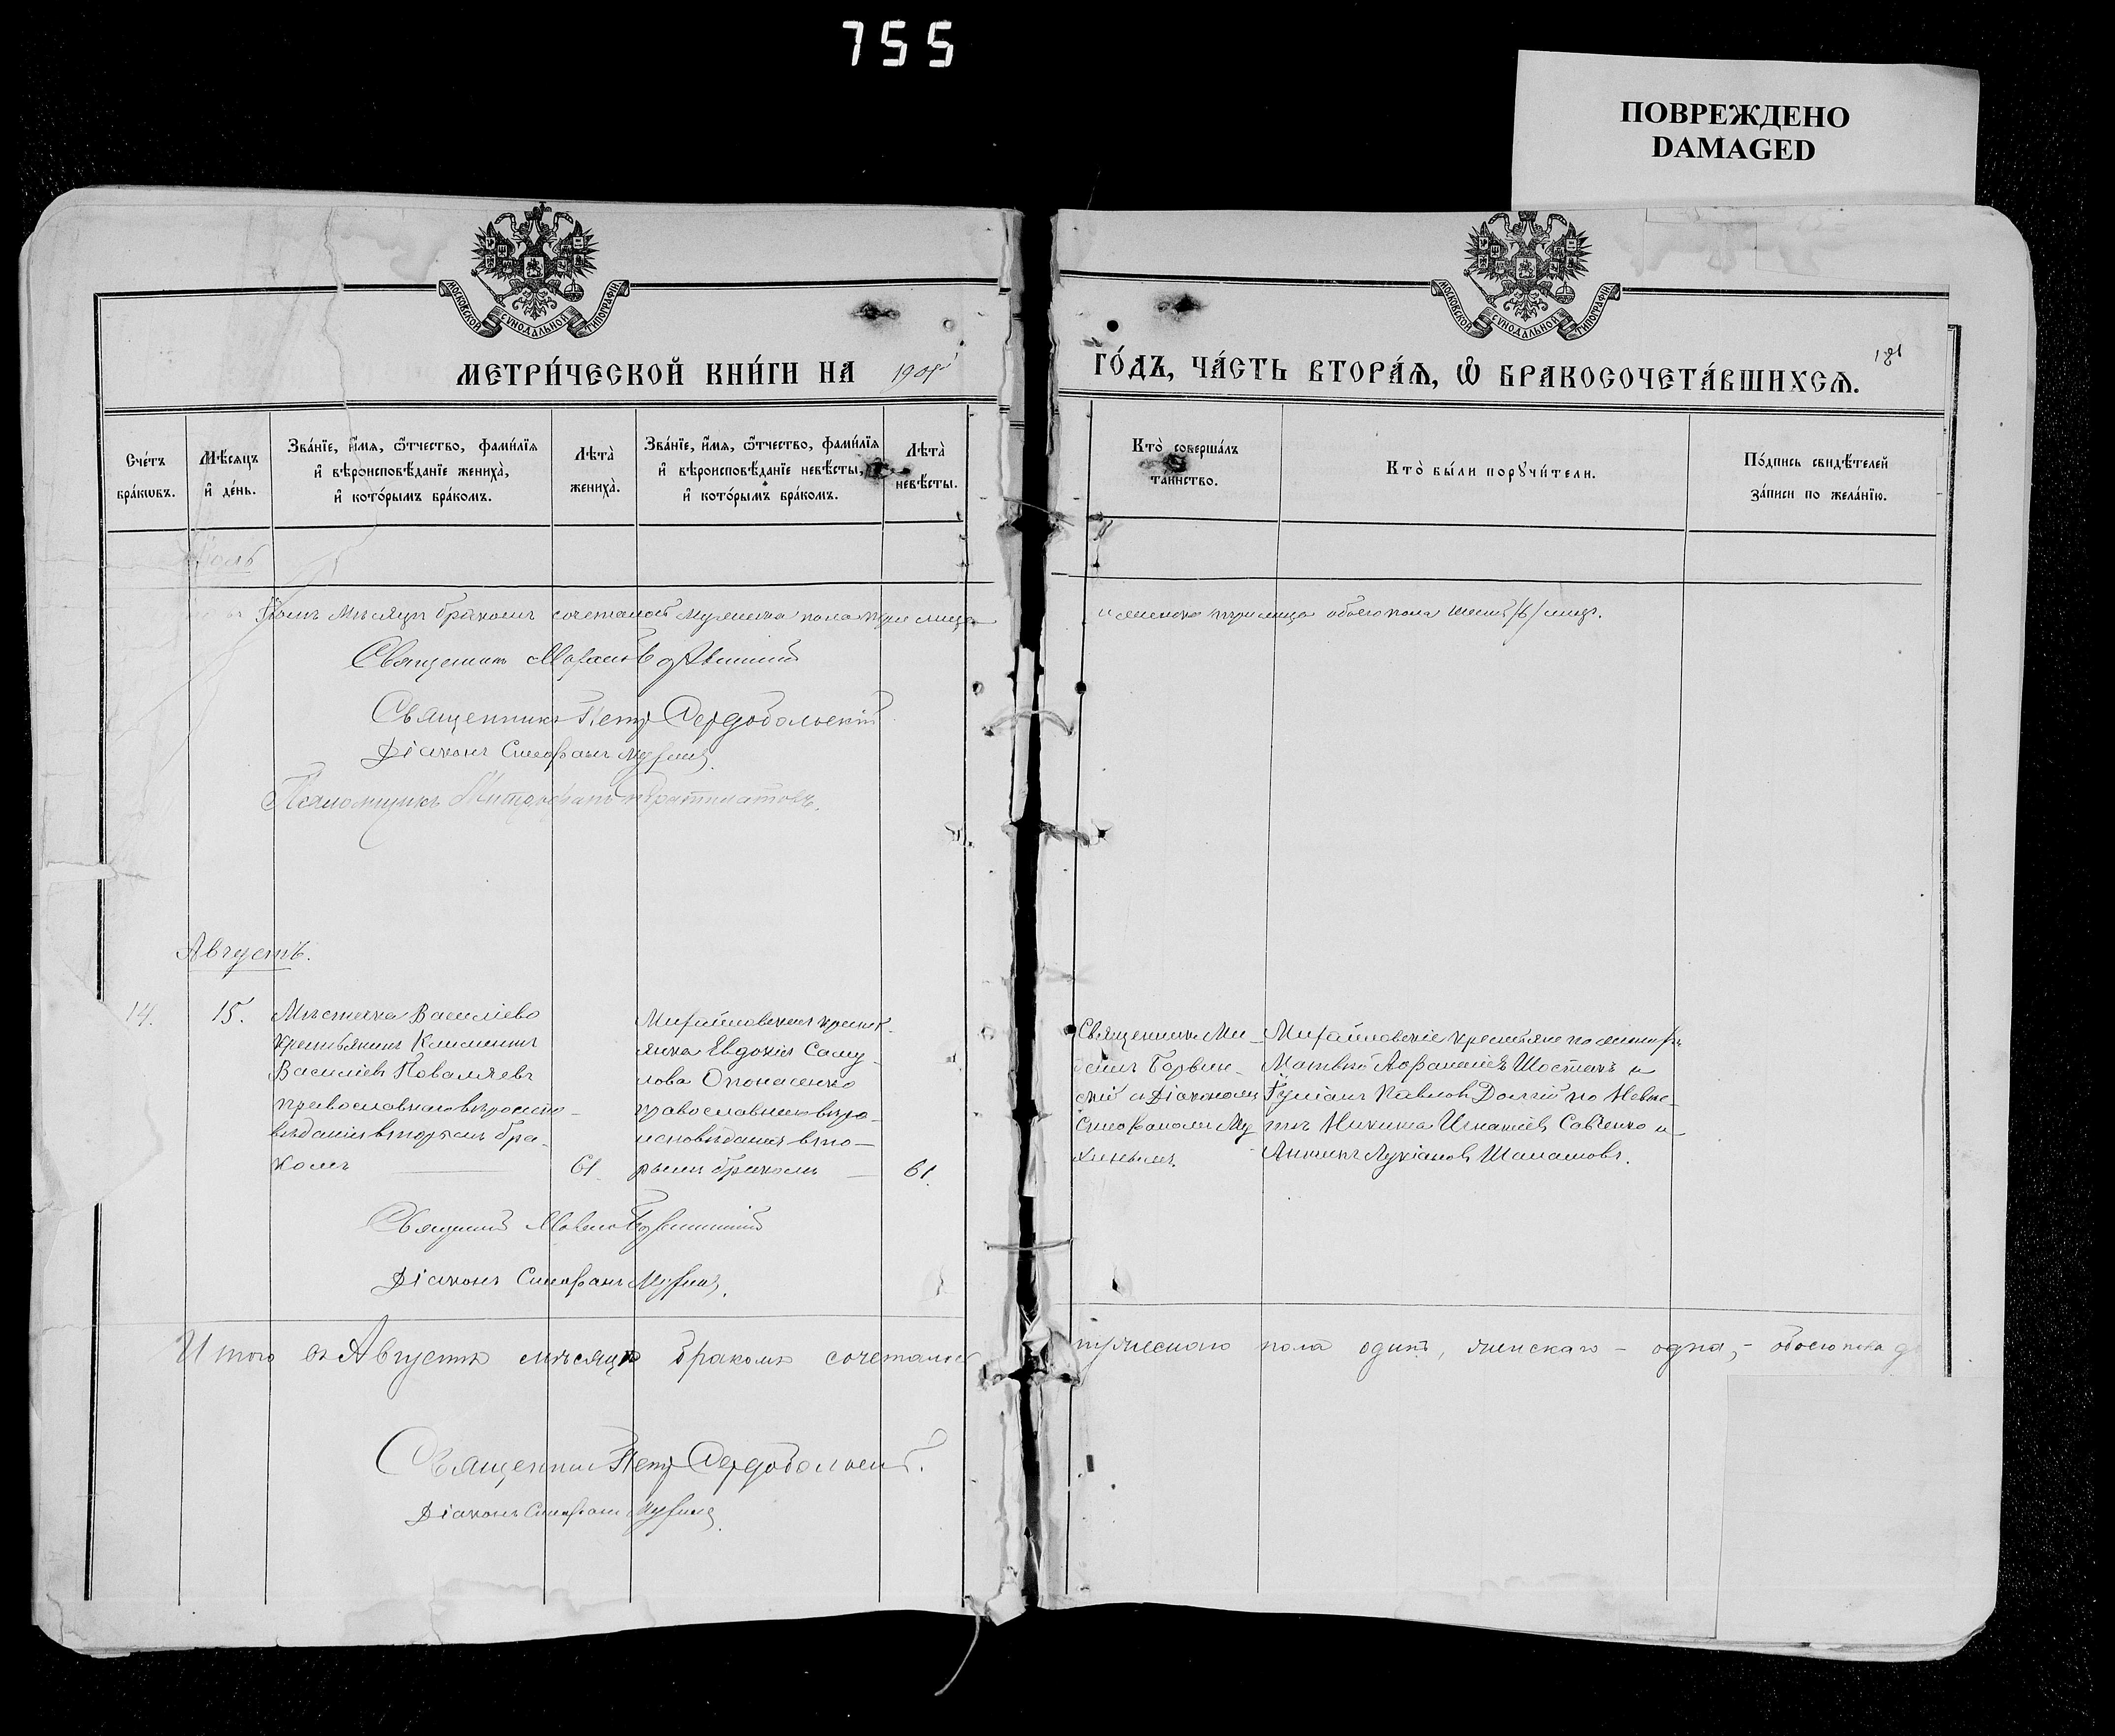 755
ПОВРЕЖДЕНО
DAMAGED
МОСКОВСКОЙ СѴНОДАЛЬНОЙ ТИПОГРАФІИ
МОСКОВСКОЙ СѴНОДАЛЬНОЙ ТИПОГРАФІИ
МЕТРИ́ЧЕСКОЙ КНИ́ГИ НА
ГО́ДЪ, ЧА́СТЬ ВТОРА́Ѧ, Ѡ БРАКОСОЧЕТА́ВШИХСѦ.
181
Сче́тъ бра́кωвъ.
Мѣ́сяцъ и҆ де́нь.
Зва́нїе, и҆́мя, ѻ҆́тчество, фами́лїя
и҆ вѣроисповѣ́данїе жениха̀,
и҆ кото́рымъ бра́комъ.
Лѣта̀ жениха̀.
Зва́нїе, и҆́мя, ѻ҆́тчество, фами́лїя
и҆ вѣроисповѣ́данїе невѣ́сты,
и҆ кото́рымъ бра́комъ.
Лѣта̀ невѣ́сты.
Кто̀ соверша́лъ
та́инство.
Кто̀ бы́ли порꙋчи́тели.
По́дпись свидѣ́телей
за́писи по жела́нїю.
мѣсяцѣ бракомъ сочеталось мужеска пола три лица
и женска три лица обоего пола шесть /6/ лицъ.
Священникъ
Священникъ Петръ Сердобольскій
Діаконъ Стефанъ
Псаломщикъ Митрофанъ
Августъ.
14.
15.
Мѣстечка Василіево
крестьянинъ Климентъ
Василіевъ Коваляевъ
православнаго вѣроиспо-
вѣданія вторымъ бра-
комъ
61.
Михайловская крестья-
янка Евдокія Саму-
лова Опонасенко
православнаго вѣро-
исповѣданія вто-
рымъ бракомъ
61.
Священникъ Ми-
скій и Діакономъ
Стефаномъ Му
Михайловскіе крестьяне по жениху
Матвѣй Аѳанасіевъ Шостакъ и
Павловъ Долгій по Невѣс-
тѣ Никита Игнатіевъ Савченко и
Лукіановъ Шалашовъ.
Священникъ
Діаконъ Стефанъ
Итого въ Августѣ мѣсяцѣ бракомъ сочеталось
мужескаго пола одинъ, женскаго - одна, - обоего пола
Священникъ Петръ Сердобольскій.
Діаконъ Стефанъ